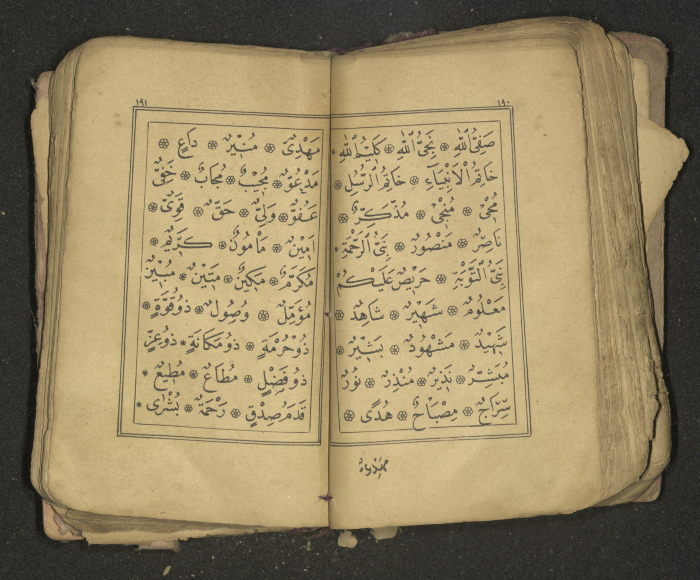 ١٩٠
صَفِيُّ اللهِ ❁ نَجِيُّ اللهِ ❁ كَلِيمُ اللهِ ❁
خَاتِمُ الْأَنْبِيَاءِ ❁ خَاتِمُ الرُّسُلِ ❁
مُحْيٍ ❁ مُنْجٍي ❁ مُذَكِّرٌ ❁
نَاصِرٌ ❁ مَنْصُورٌ ❁ نَبِيُّ الرَّحْمَةِ ❁
نَبِيُّ التَّوْبَةِ ❁ حَرِيصٌ عَلَيْكُمْ
مَعْلُومٌ ❁ شَهِيرٌ ❁ شَاهِدٌ ❁
شَهِيدٌ ❁ مَشْهُودٌ ❁ بَشِيرٌ ❁
مُبَشِّرٌ ❁ نَذِيرٌ ❁ مُنْذِرٌ ❁ نُورٌ
سِرَاجٌ ❁ مِصْبَاحٌ ❁ هُدًى ❁
مَهْدِيٌّ
١٩١
مَهْدِيٌّ ❁ مُنِيرٌ ❁ دَاعٍ ❁
مَدْعُوٌّ ❁ مُجِيبٌ ❁ مُجَابٌ ❁ حَفِيٌّ
عَفُوٌّ ❁ وَلِيٌّ ❁ حَقٌّ ❁ قَوِيٌّ ❁
اَمِينٌ ❁ مَأْمُونٌ ❁ كَرِيمٌ ❁
مُكَرَّمٌ ❁ مَكِينٌ ❁ مَتِينٌ ❁ مُبِينٌ
مُؤَمِّلٌ ❁ وَصُولٌ ❁ ذُو قُوَّةٍ ❁
ذُو حُرْمَةٍ ❁ ذُو مَكَانَةٍ ❁ ذُو عِزٍّ
ذُو فَضْلٍ ❁ مُطَاعٌ ❁ مُطِيعٌ ❁
قَدَمُ صِدْقٍ ❁ رَحْمَةٌ ❁ بُشْرٰى ❁